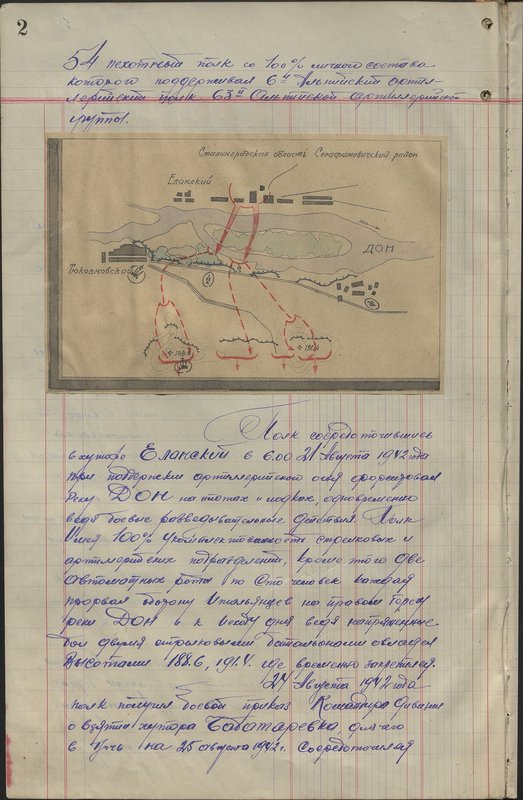 2
54 пехотный полк со 100% личного состава
которого поддерживал 6й Альпийский артил-
лерийский полк 63й Альпийской артиллерийской
группы.
Сталинградская область Серафимовический район
Еланский
ДОН
Тюковновский
188
191.4
Полк сосредоточившись
в хуторе Еланский в 6.00 21 августа 1942 года
при поддержки артиллерийского огня форсировал
реку ДОН на плотах и лодках, одновременно
ведя боевые разведывательные действия. Полк
имея 100% укомплектованность стрелковых и
артиллерийских подразделений, кроме этого две
автоматных роты по сто человек каждая
прорвал оборону Итальянцев на правом берегу
реки ДОН и к исходу дня ведя напряженные
бои двумя стрелковыми батальонами овладел
высотами 188.6, 191.4. где временно закрепился
24 августа 1942 года
полк получил боевой приказ Командира дивизии
о взятии хутора Бахтаревка, для чего
в ночь на 25 августа 1942 г. Сосредоточился